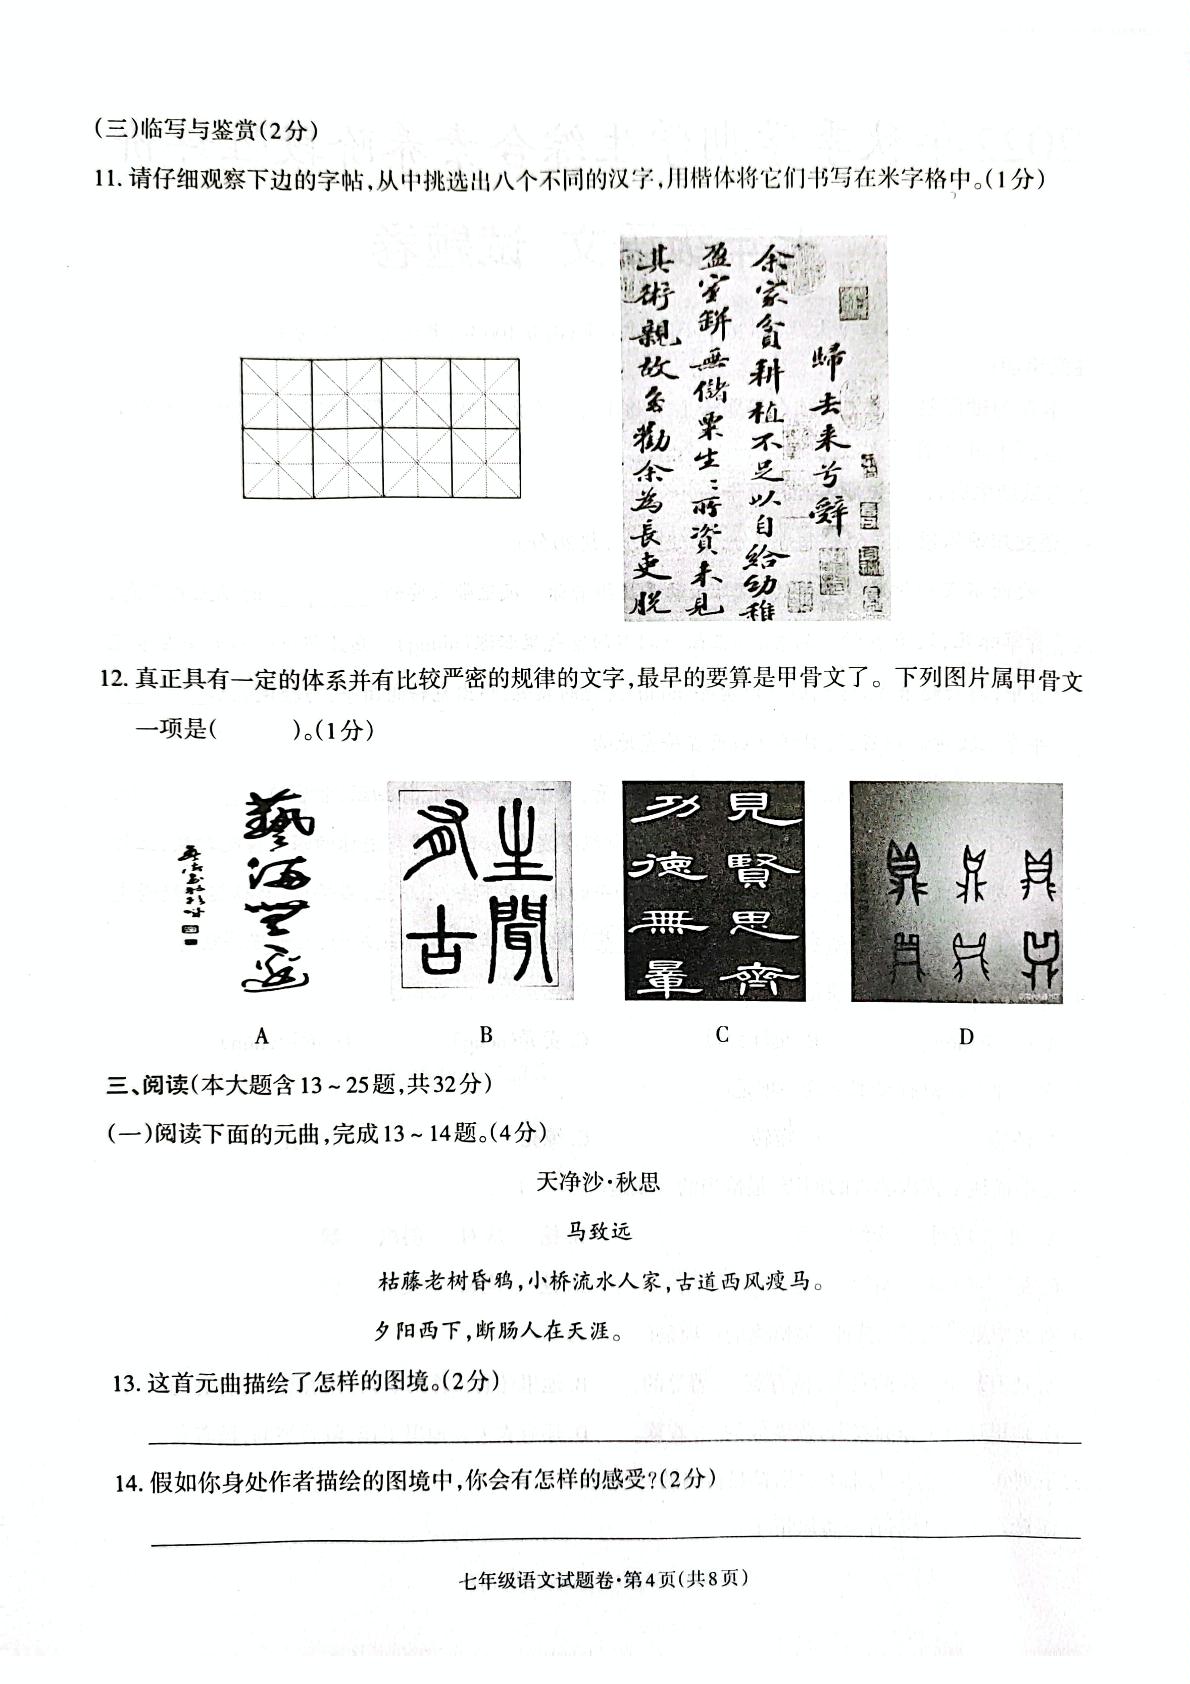 (三)临写与鉴赏(2分)
11. 请仔细观察下边的字帖,从中挑选出八个不同的汉字,用楷体将它们书写在米字格中。(1分)
歸去来兮辭
余家貧耕植不足以自給幼稚
盈室缾無儲粟生:所資未見
其術親故多勸余為長吏脱
12. 真正具有一定的体系并有比较严密的规律的文字,最早的要算是甲骨文了。下列图片属甲骨文
一项是(    )。(1分)
藝海無邊
生聞
古
見賢思齊
功德無量
A
B
C
D
三、阅读(本大题含13~25题,共32分)
(一)阅读下面的元曲,完成13~14题。(4分)
天净沙·秋思
马致远
枯藤老树昏鸦,小桥流水人家,古道西风瘦马。
夕阳西下,断肠人在天涯。
13. 这首元曲描绘了怎样的图境。(2分)
14. 假如你身处作者描绘的图境中,你会有怎样的感受?(2分)
七年级语文试题卷·第4页(共8页)